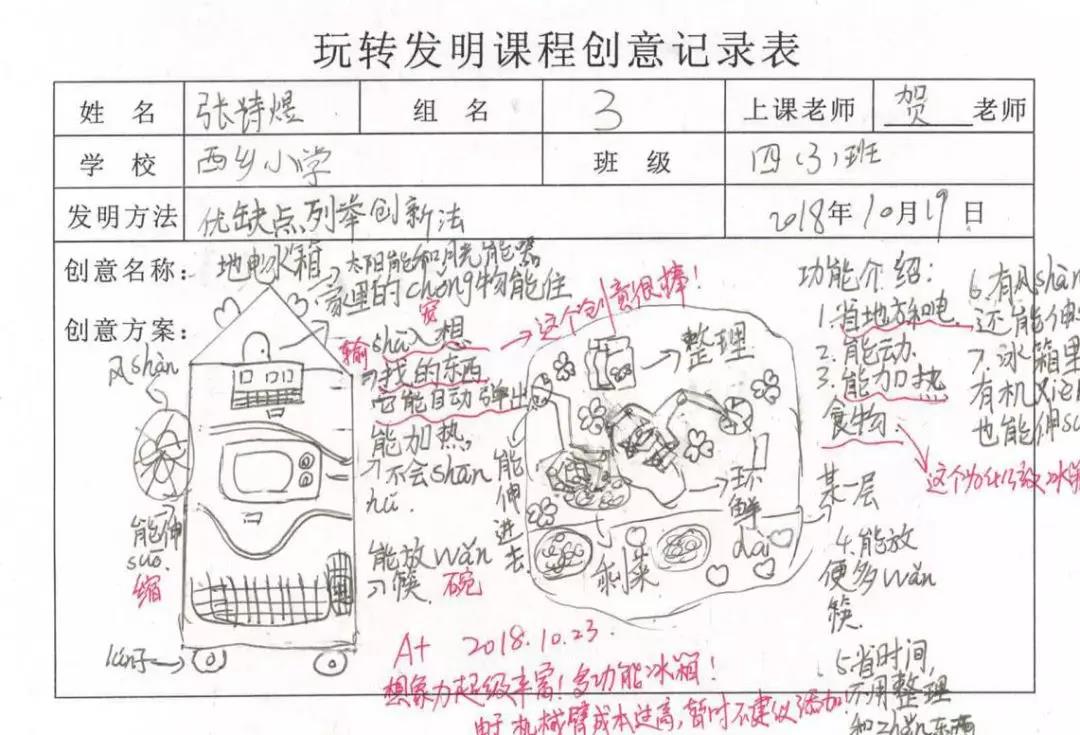 玩转发明课程创意记录表
姓 名 张诗煜 组 名 3 上课老师 贺 老师
学 校 西乡小学 班 级 四(3)班
发明方法 优缺点列举创新法 2018年10月19日
创意名称： 地 冰箱
→太阳能和月光能器
家里的chǒng物能住
宠
创意方案：
风shàn
shū入想
输
→找的东西
它能自动弹出
→这个创意很棒！
能加热，
→不会shǎn
hú.
能放wǎn
筷 碗
能伸
suō.
缩
lún子→
能伸进去.
→整理
→环
鲜
剩菜
dà
某一层
功能介绍：
1.省地方和电
2.能动.
3.能加热
食物.
4.能放
便多wǎn
筷.
5.省时间，
不用整理
和zhǎn东西
6.有风shàn
还能伸
7.冰箱里
有机xiè
也能伸su
A+ 2018.10.23.
想象力超级丰富！多功能冰箱！
由于机械臂成本过高，暂时不建议添加